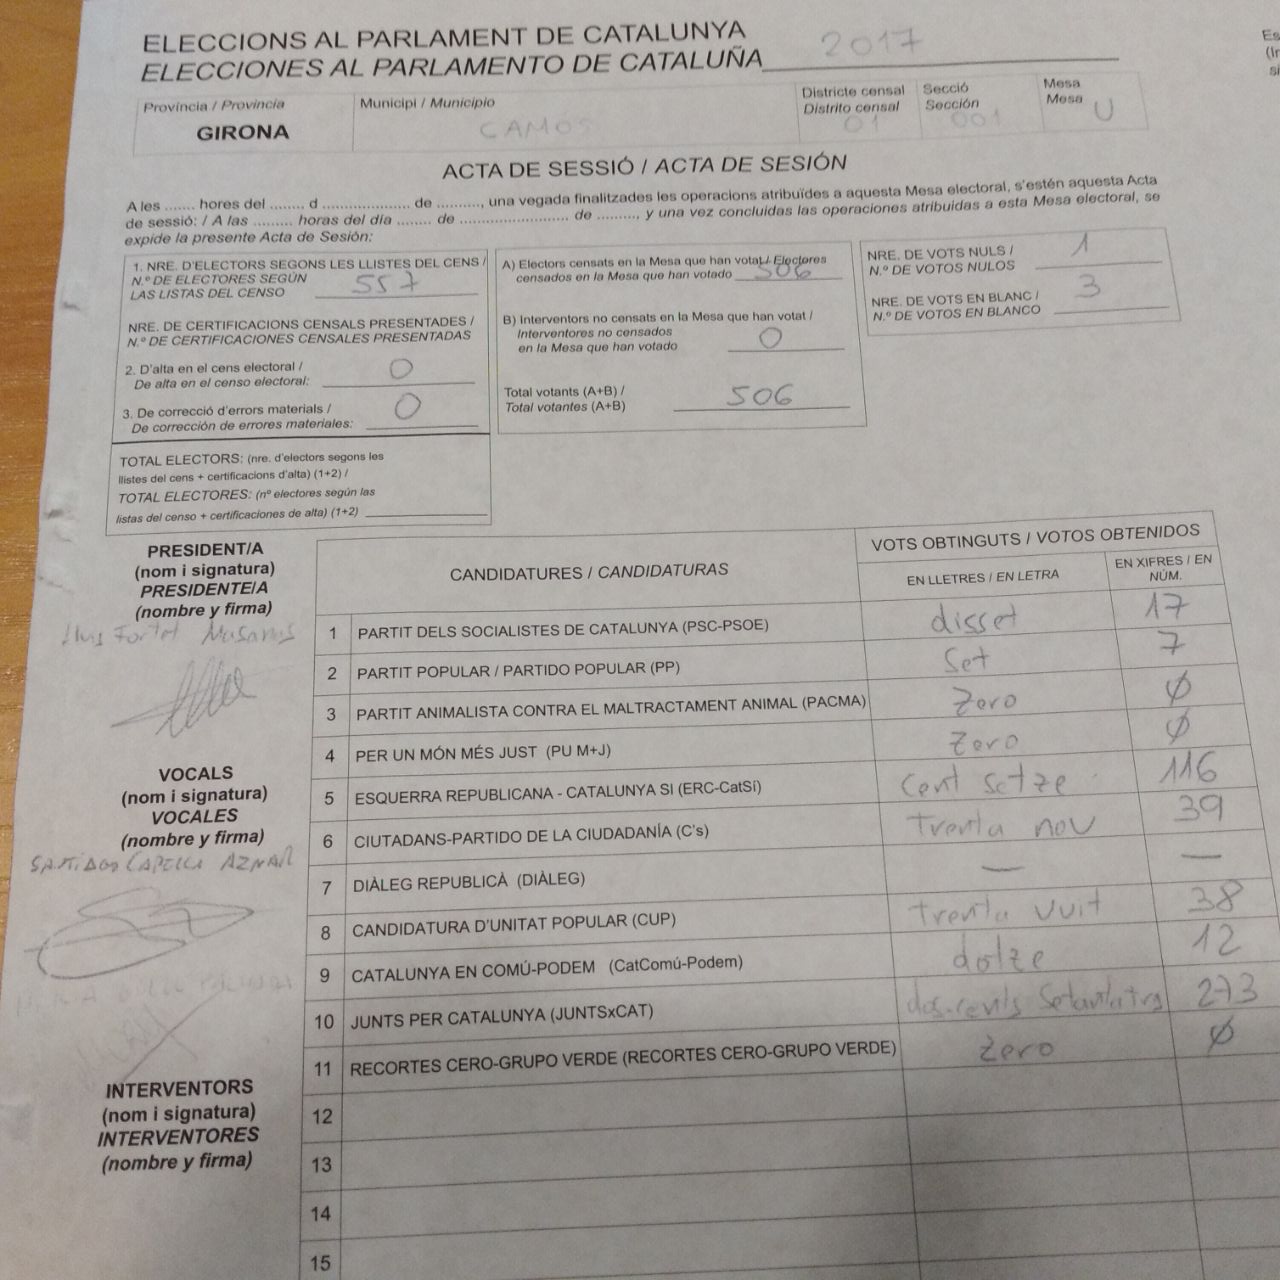 ELECCIONS AL PARLAMENT DE CATALUNYA
ELECCIONES AL PARLAMENTO DE CATALUÑA 2017
Es
(Ir
si
Província / Provincia
GIRONA
Municipi / Municipio
CAMÓS
Districte censal
Distrito censal
01
Secció
Sección
001
Mesa
Mesa
U
ACTA DE SESSIÓ / ACTA DE SESIÓN
A les ....... hores del ....... d ................ de .........., una vegada finalitzades les operacions atribuïdes a aquesta Mesa electoral, s'estén aquesta Acta
de sessió: / A las ......... horas del día ........ de ...................... de ........., y una vez concluidas las operaciones atribuidas a esta Mesa electoral, se
expide la presente Acta de Sesión:
1. NRE. D'ELECTORS SEGONS LES LLISTES DEL CENS /
N.º DE ELECTORES SEGÚN
LAS LISTAS DEL CENSO 557
NRE. DE CERTIFICACIONS CENSALS PRESENTADES /
N.º DE CERTIFICACIONES CENSALES PRESENTADAS
2. D'alta en el cens electoral /
De alta en el censo electoral: 0
3. De correcció d'errors materials /
De corrección de errores materiales: 0
TOTAL ELECTORS: (nre. d'electors segons les
llistes del cens + certificacions d'alta) (1+2) /
TOTAL ELECTORES: (nº electores según las
listas del censo + certificaciones de alta) (1+2)
A) Electors censats en la Mesa que han votat / Electores
censados en la Mesa que han votado 506
B) Interventors no censats en la Mesa que han votat /
Interventores no censados
en la Mesa que han votado 0
Total votants (A+B) /
Total votantes (A+B) 506
NRE. DE VOTS NULS /
N.º DE VOTOS NULOS 1
NRE. DE VOTS EN BLANC /
N.º DE VOTOS EN BLANCO 3
PRESIDENT/A
(nom i signatura)
PRESIDENTE/A
(nombre y firma)
Lluis Fortet
VOCALS
(nom i signatura)
VOCALES
(nombre y firma)
SANTIAGO CAPELLA AZNAR
INTERVENTORS
(nom i signatura)
INTERVENTORES
(nombre y firma)
CANDIDATURES / CANDIDATURAS
VOTS OBTINGUTS / VOTOS OBTENIDOS
EN LLETRES / EN LETRA
EN XIFRES / EN
NÚM.
1 PARTIT DELS SOCIALISTES DE CATALUNYA (PSC-PSOE) disset 17
2 PARTIT POPULAR / PARTIDO POPULAR (PP) Set 7
3 PARTIT ANIMALISTA CONTRA EL MALTRACTAMENT ANIMAL (PACMA) Zero Ø
4 PER UN MÓN MÉS JUST (PU M+J) Zero Ø
5 ESQUERRA REPUBLICANA - CATALUNYA SI (ERC-CatSí) Cent setze 116
6 CIUTADANS-PARTIDO DE LA CIUDADANÍA (C's) Trenta nou 39
7 DIÀLEG REPUBLICÀ (DIÀLEG) — —
8 CANDIDATURA D'UNITAT POPULAR (CUP) Trenta vuit 38
9 CATALUNYA EN COMÚ-PODEM (CatComú-Podem) dotze 12
10 JUNTS PER CATALUNYA (JUNTSxCAT) dos-cents 273
11 RECORTES CERO-GRUPO VERDE (RECORTES CERO-GRUPO VERDE) Zero Ø
12
13
14
15